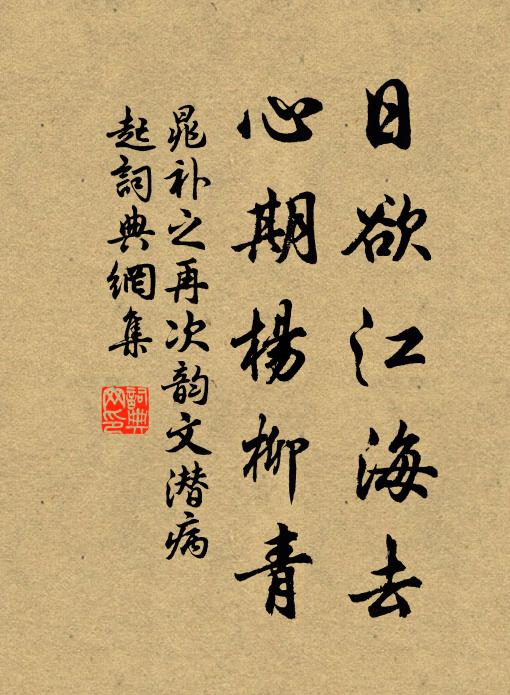 日欲江海去
心期楊柳青
晁补之再次韵文潜病
起詞典網集
詞典網印